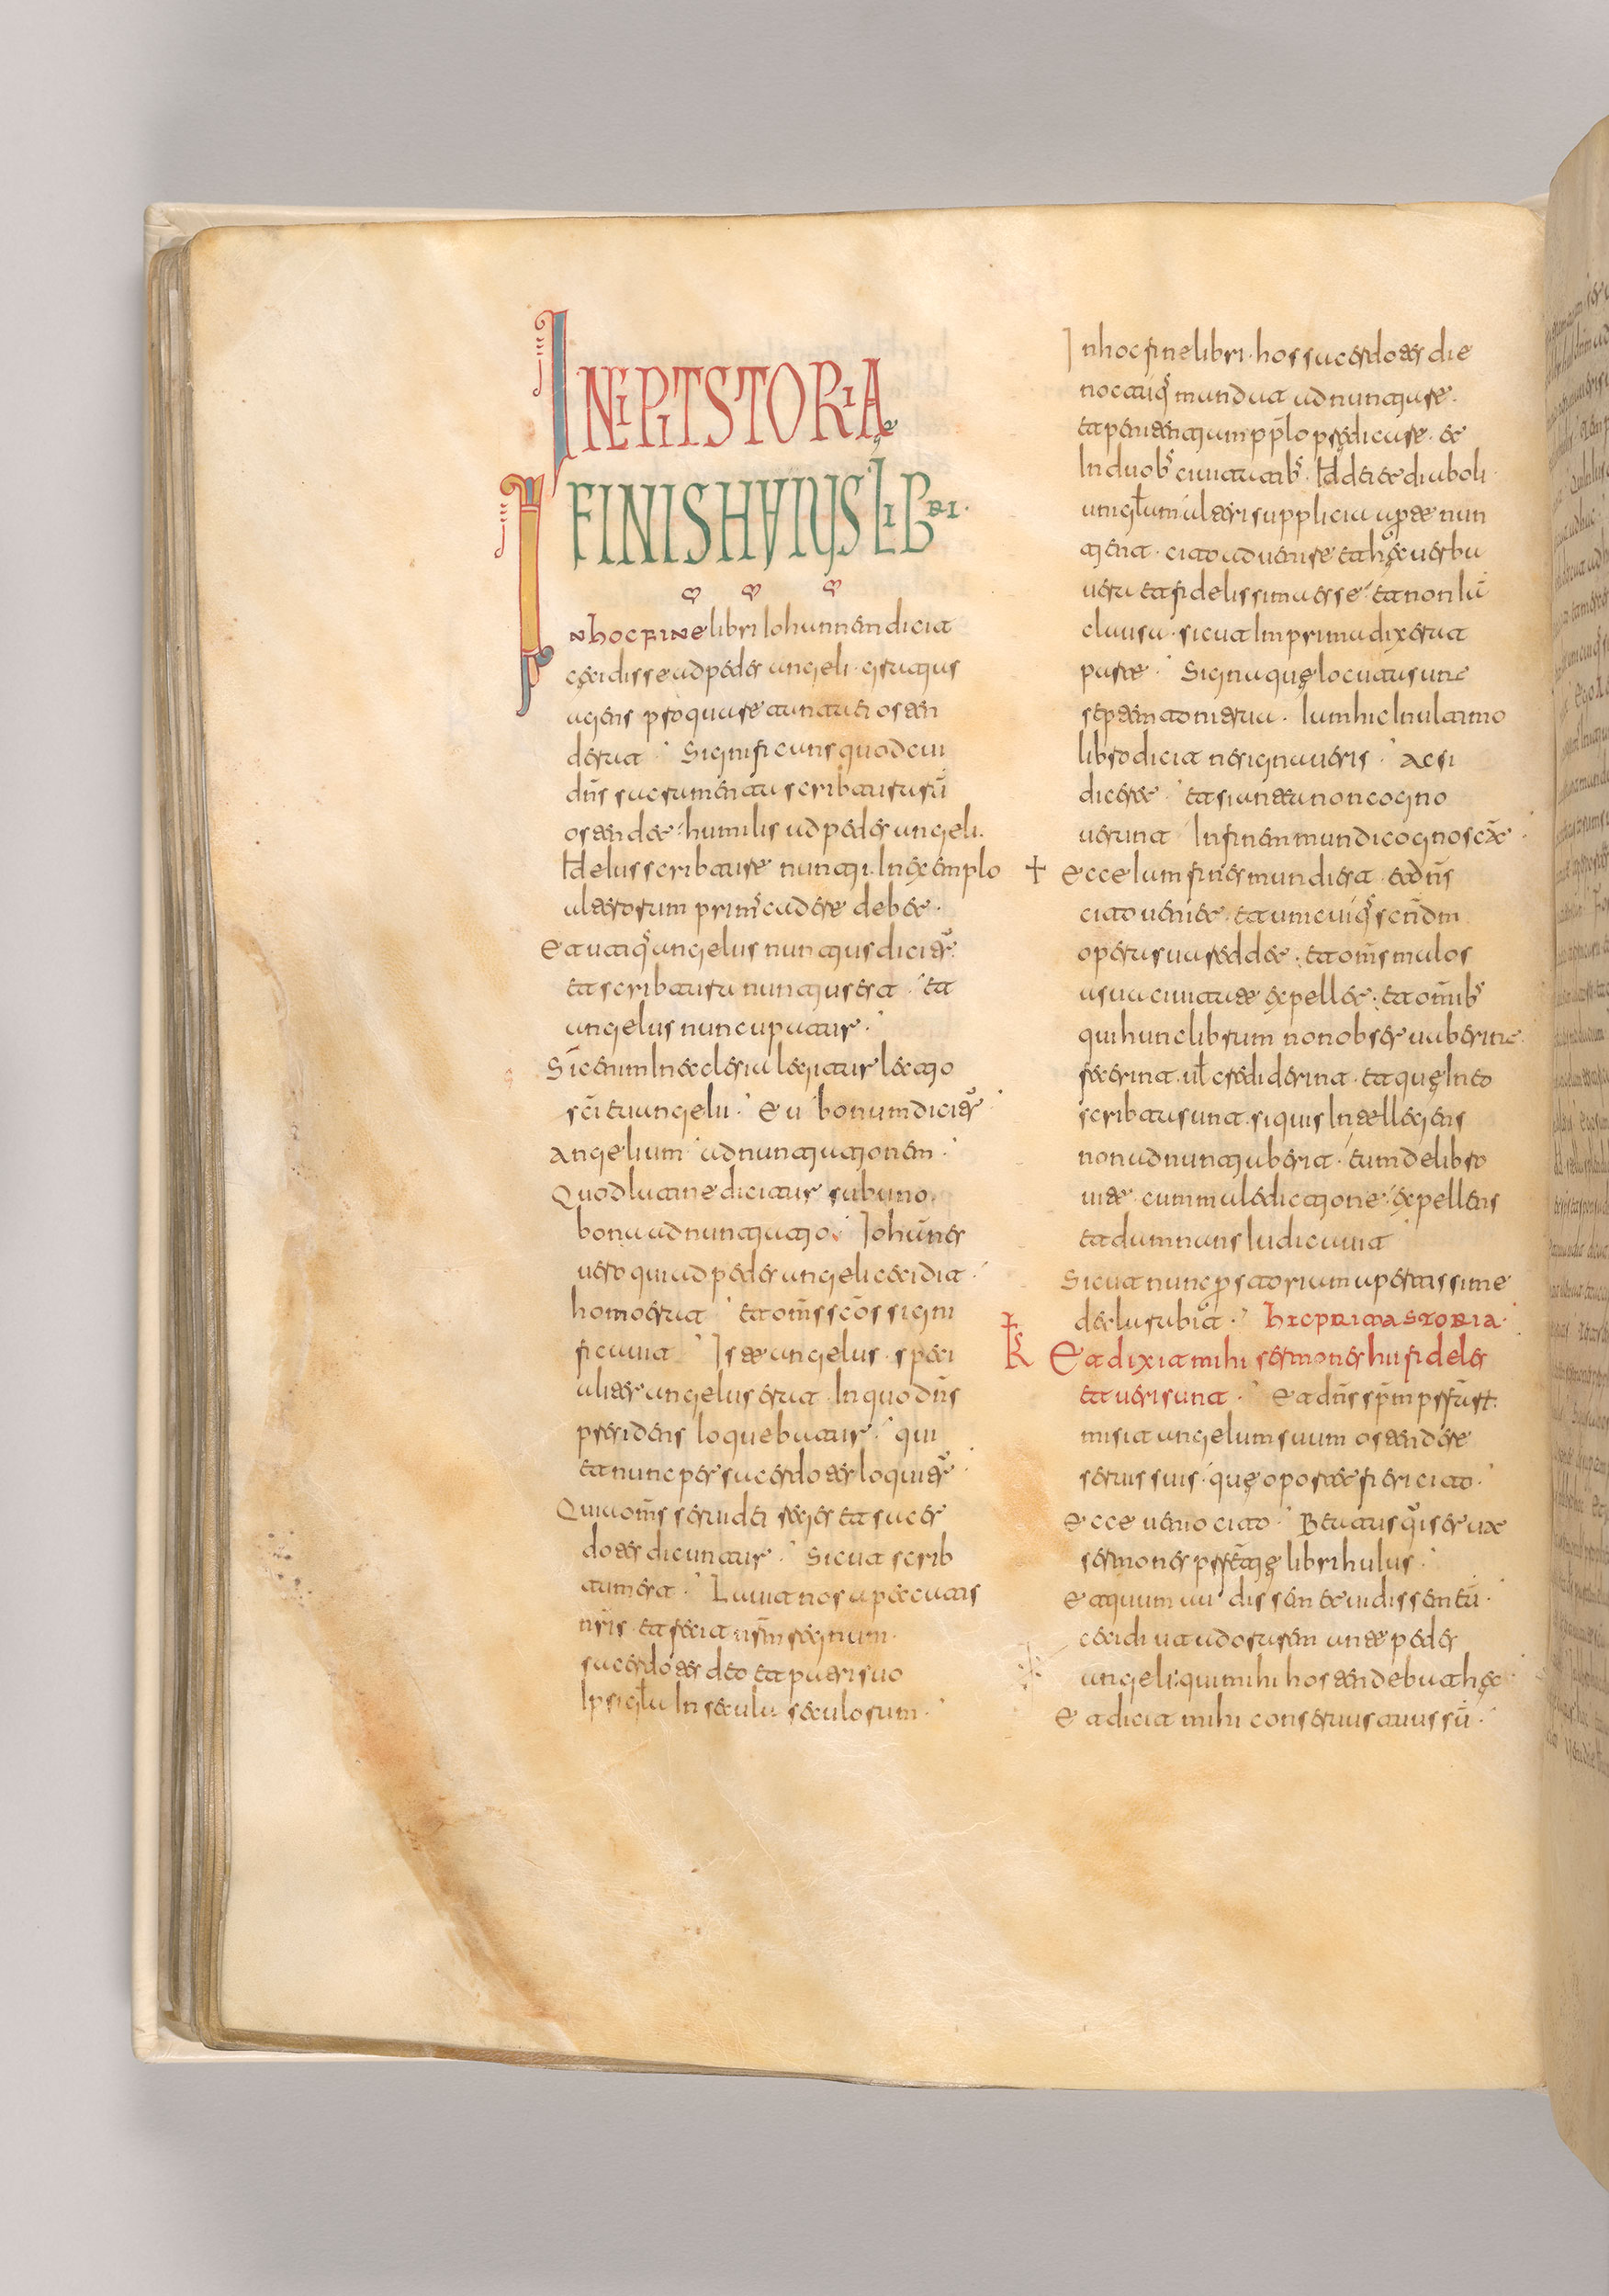 INCIPIT STORIAE
FINIS HUIUS LIBRI.
In hoc fine libri Iohannem dicit
cecidisse ad pedes angeli. gratias
agens pro quare tanta ei osten
derat. Significans quod cui
dns sacramenta scribturarū
ostendet. humilis ad pedes angeli.
Id e ius scribture nunti. In exemplo
alterorum primꝰ cadere debet.
Et utiqꝫ angelus nuntius dicitꝛ
et scribtura nuntius est. et
angelus nuncupatur.
Sic enim in eclesia legitur lectio
sci euangelii. Eu bonum dicitꝛ
angelium adnuntiationem.
Quod latine dicitur sub uno
bona adnuntiatio. Iohannes
uero qui ad pedes angeli cecidit.
homo erat et oms scos signi
ficauit. Iste angelus speci
aliter angelus erat. In quo dns
presidens loquebatur. qui
et nunc per sacerdotes loquitꝛ.
Qui a oms serui dei reges et sacer
dotes dicuntur. Sicut scrib
tum est. Lauit nos a peccatis
nris. et fecit nsm regnum.
sacerdotes deo et patri suo
Ipsi gła In secula seculorum.
In hoc fine libri. hos sacerdotes die
noctuqꝫ mundua adnuntiare.
et penitentiam pplo predicare. et
In duobꝫ ciuitatibꝫ. Id dei et diaboli
uni głam alteri supplicia aperte nun
tient. cito aduenire et hec uerba
uera et fidelissima esse. et non In
clausa. sicut Imprima dixerat
parte. Signa que locuta sunt
septem tonitrua. Iam hic In ultimo
libro dicit ne signaueris. Acsi
diceret. etsi ante non cogno
uerunt In finem mundi cognoscāt.
+ Ecce Iam finis mundi est. et dns
cito ueniet. et unicuiqꝫ scdm
opera sua reddet. et oms malos
a sua ciuitate expellet. et omibꝫ
qui hunc librum non obseruaberint.
fecerint. uł crediderint. et que In eo
scribta sunt. siquis Intellegens
non adnuntiaberit. eum de libro
uite. cum maledictione. expellens
et damnans Iudicauit
Sicut nunc per storiam apertissime
declarabit. HIC PRIMA STORIA.
Et dixit mihi sermones hii fideles
et ueri sunt. Et dns spm prftarū
misit angelum suum ostendere
seruis suis. que oportet fieri cito.
Ecce uenio cito. Beatus qui seruat
sermones prfetie libri huius.
Et quum audissem et uidissem eū.
cecidi ut adorarem ante pedes
angeli. qui mihi hostendebat hec
Et dicit mihi conseruus tuus sū.